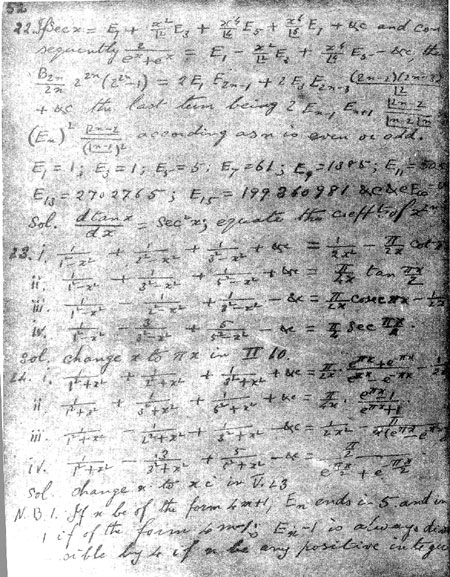 52
22. If Sec x = E₁ + x²/|2 E₃ + x⁴/|4 E₅ + x⁶/|6 E₇ + &c and con
sequently 2/(eˣ+e⁻ˣ) = E₁ - x²/|2 E₃ + x⁴/|4 E₅ - &c, the
B₂ₙ/2n 2²ⁿ(2²ⁿ-1) = 2E₁ E₂ₙ₋₁ + 2E₃ E₂ₙ₋₃ (2n-2)(2n-3)/|2
+ &c the last term being 2 Eₙ₋₁ Eₙ₊₁ |2n-2/
(Eₙ)² |2n-2/(|n-1)² according as n is even or odd.
E₁ = 1; E₃ = 1; E₅ = 5; E₇ = 61; E₉ = 1385; E₁₁ =
E₁₃ = 2702765; E₁₅ = 199360981 &c &c
Sol. d tan x/dx = sec² x; equate the coefft of x
23. i. 1/(1²-x²) + 1/(2²-x²) + 1/(3²-x²) + &c = 1/2x² - π/2x cot
ii. 1/(1²-x²) + 1/(3²-x²) + 1/(5²-x²) + &c = π/4x tan πx/2
iii. 1/(1²-x²) - 1/(2²-x²) + 1/(3²-x²) - &c = π/2x cosec πx - 1/2x
iv. 1/(1²-x²) - 3/(3²-x²) + 5/(5²-x²) - &c = π/4 sec πx/2.
Sol. change x to πx in II 10.
24. i. 1/(1²+x²) + 1/(2²+x²) + 1/(3²+x²) + &c = π/2x · (e^πx + e^-πx)/(e^πx - e^-πx) - 1/2x
ii 1/(1²+x²) + 1/(3²+x²) + 1/(5²+x²) + &c = π/4x · (e^πx - 1)/(e^πx + 1)
iii. 1/(1²+x²) - 1/(2²+x²) + 1/(3²+x²) - &c = 1/2x² -
iv. 1/(1²+x²) - 3/(3²+x²) + 5/(5²+x²) - &c = (π/2)/(e^(πx/2) + e^(-πx/2))
Sol. change x to xi in V. 23
N.B. 1. If n be of the form 4m+1, Eₙ ends in 5 and in
1 if of the form 4m-1; Eₙ-1 is always
sible by 4 if n be any positive